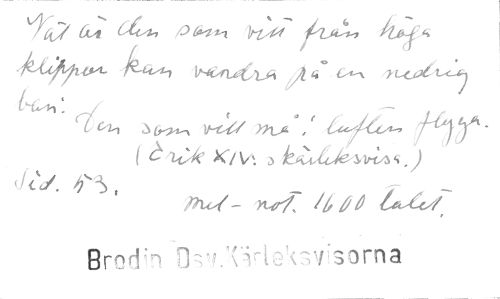 Nöt är den som vitt från höga
klippor kan vandra på en nedrig
ban:
Den som vill må i luften flyga.
(Erik XIV:s kärleksvisa.)
Sid. 53.
mel - not. 1600 talet.
Brodin Dsv. Kärleksvisorna